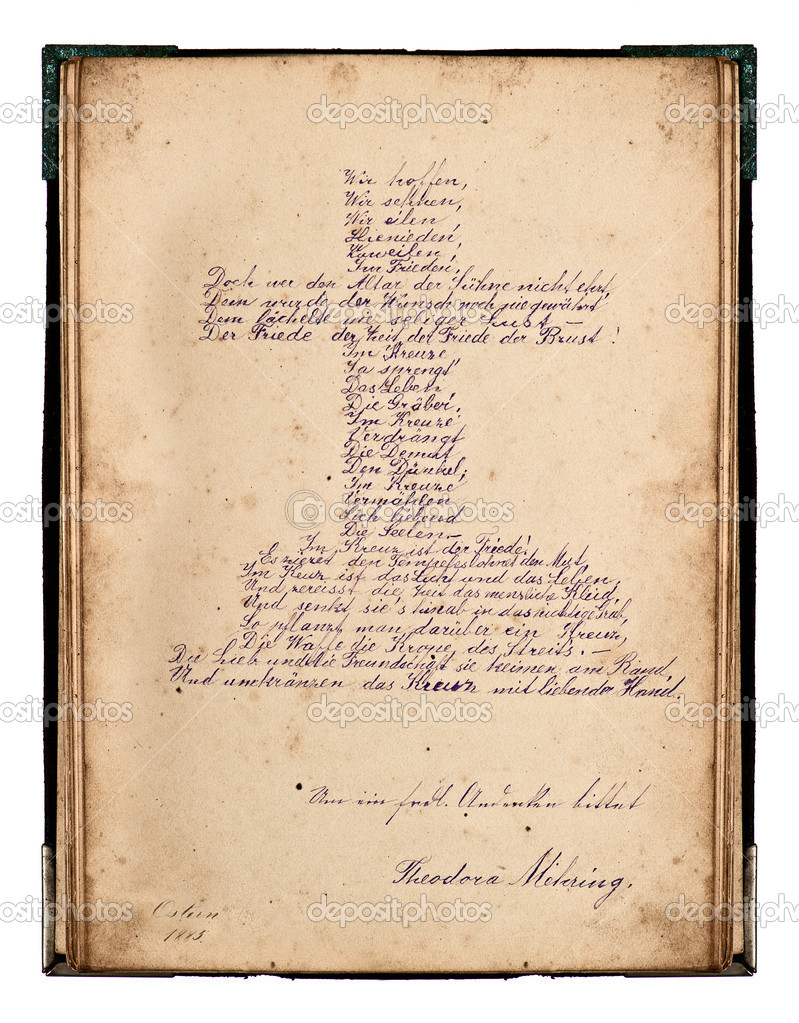 Wir hoffen,
Wir sehnen,
Wir eilen
Hienieden,
Zuweilen,
Im Frieden,
Doch wer den Altar der Sühne nicht ehrt,
Dem wurde der Wunsch noch nie gewährt
Dem lächelt nie seliger Lust –
Der Friede der Zeit, der Friede der Brust!
Im Kreuze,
Da sprengt
Das Leben
Die Gräber,
Im Kreuze
Verdrängt
Die Demut
Den Dünkel;
Im Kreuze
Vermählen
Sich liebend
Die Seelen –
Im Kreuz ist der Friede!
Es zieret den
Im Keuz ist das Licht und das Leben,
Und zereisst die Zeit das menzliche Kleid,
Und senkt sie's hinab in das nichtige Grab,
So pflanzt man darüber ein Kreuze,
Die Waffe die Krone des Streits. –
Die Lieb und die Freundschaft sie keimen am Rand,
Und umkränzen das Kreuz mit liebender Hand.
Um ein frdl. Andenken bittet
Theodora Mehring.
Ostern
1885.
depositphotos